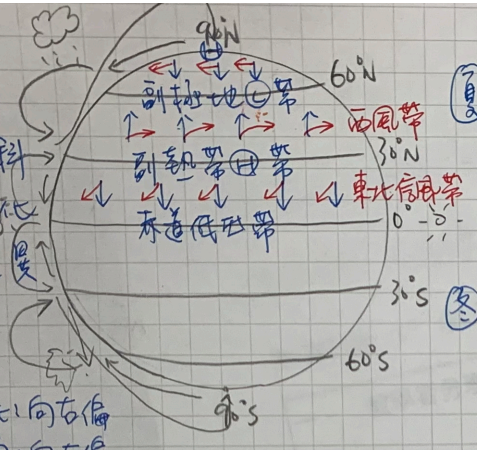 90°N
H
60°N
副極地L帶
西風帶
30°N
副熱帶H帶
東北信風帶
0°
赤道低壓帶
30°S
60°S
90°S
夏
冬
向右偏